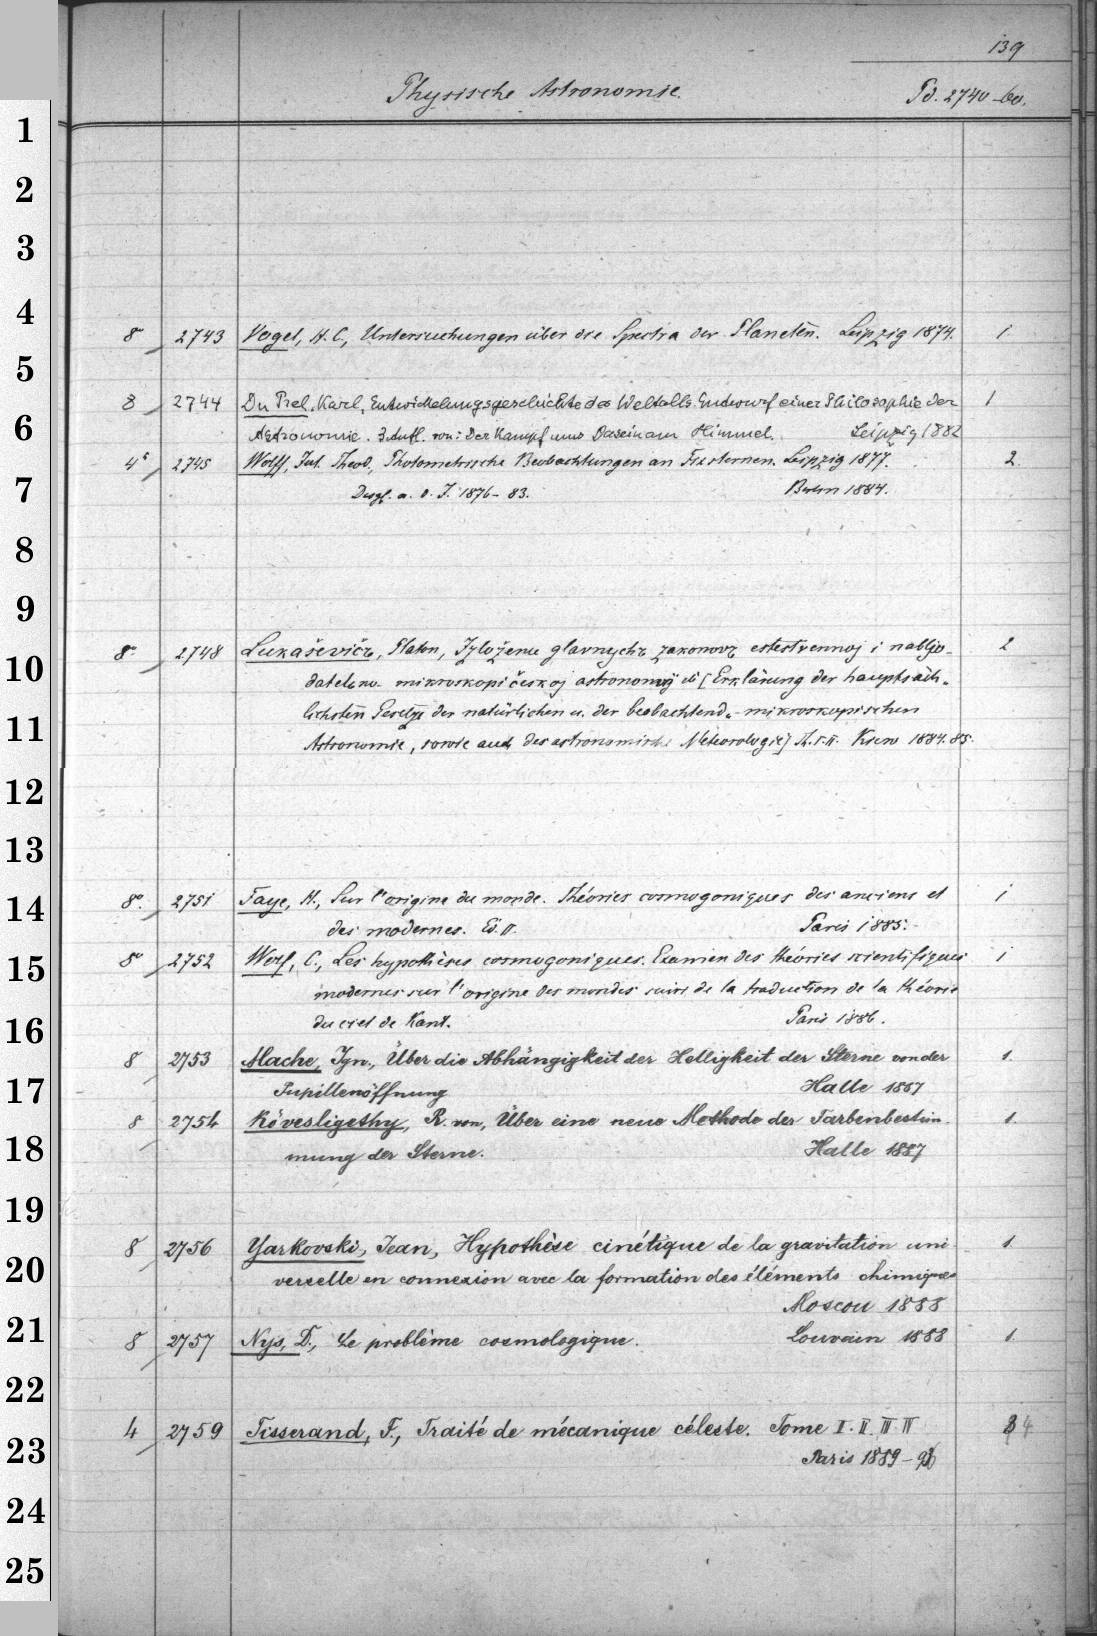 139
Physische Astronomie.
Pd. 2740-60.
8° 2743 Vogel, H. C., Untersuchungen über die Spectra der Planeten. Leipzig 1874. 1.
8 2744 Du Prel, Karl, Entwickelungsgeschichte des Weltalls. Entwurf einer Philosophie der 1
Astronomie. 3 Aufl. von: Der Kampf ums Dasein am Himmel. Leipzig 1882
4° 2745 Wolff, Jul. Theod., Photometrische Beobachtungen an Fixsternen. Leipzig 1877. 2.
Desgl. a. d. J. 1876-83. Berlin 1884.
8° 2748 Lukaševičz, Platon, Izloženie glavnychz zakonovz estestvennoj i nabljo- 2
datelьno- mikroskopičeskoj astronomij [Erklärung der hauptsäch-
lichsten Gesetze der natürlichen u. der beobachtend-mikroskopischen
Astronomie, sowie auch des astronomische Meteorologie] Th. I. II. Kiew 1884.85.
8° 2751 Faye, H., Sur l'origine du monde. Théories cosmogoniques des anciens et 1
des modernes. Éd. II. Paris 1885.
8° 2752 Wolf, C., Les hypothèses cosmogoniques. Examen des théories scientifiques 1
modernes sur l'origine des mondes suivi de la traduction de la théorie
du ciel de Kant. Paris 1886.
8 2753 Mache, Ign., Über die Abhängigkeit der Helligkeit der Sterne von der 1.
Pupillenöffnung Halle 1887
8 2754 Kövesligethy, R. von, Über eine neue Methode der Farbenbestim- 1.
mung der Sterne. Halle 1887
8 2756 Yarkovski, Jean, Hypothèse cinétique de la gravitation uni- 1.
verselle en connexion avec la formation des éléments chimiques
Moscou 1888
8 2757 Nys, D., Le problème cosmologique. Louvain 1888 1.
4 2759 Tisserand, F., Traité de mécanique céleste. Tome I. II. III. IV 4
Paris 1889-96
1
2
3
4
5
6
7
8
9
10
11
12
13
14
15
16
17
18
19
20
21
22
23
24
25